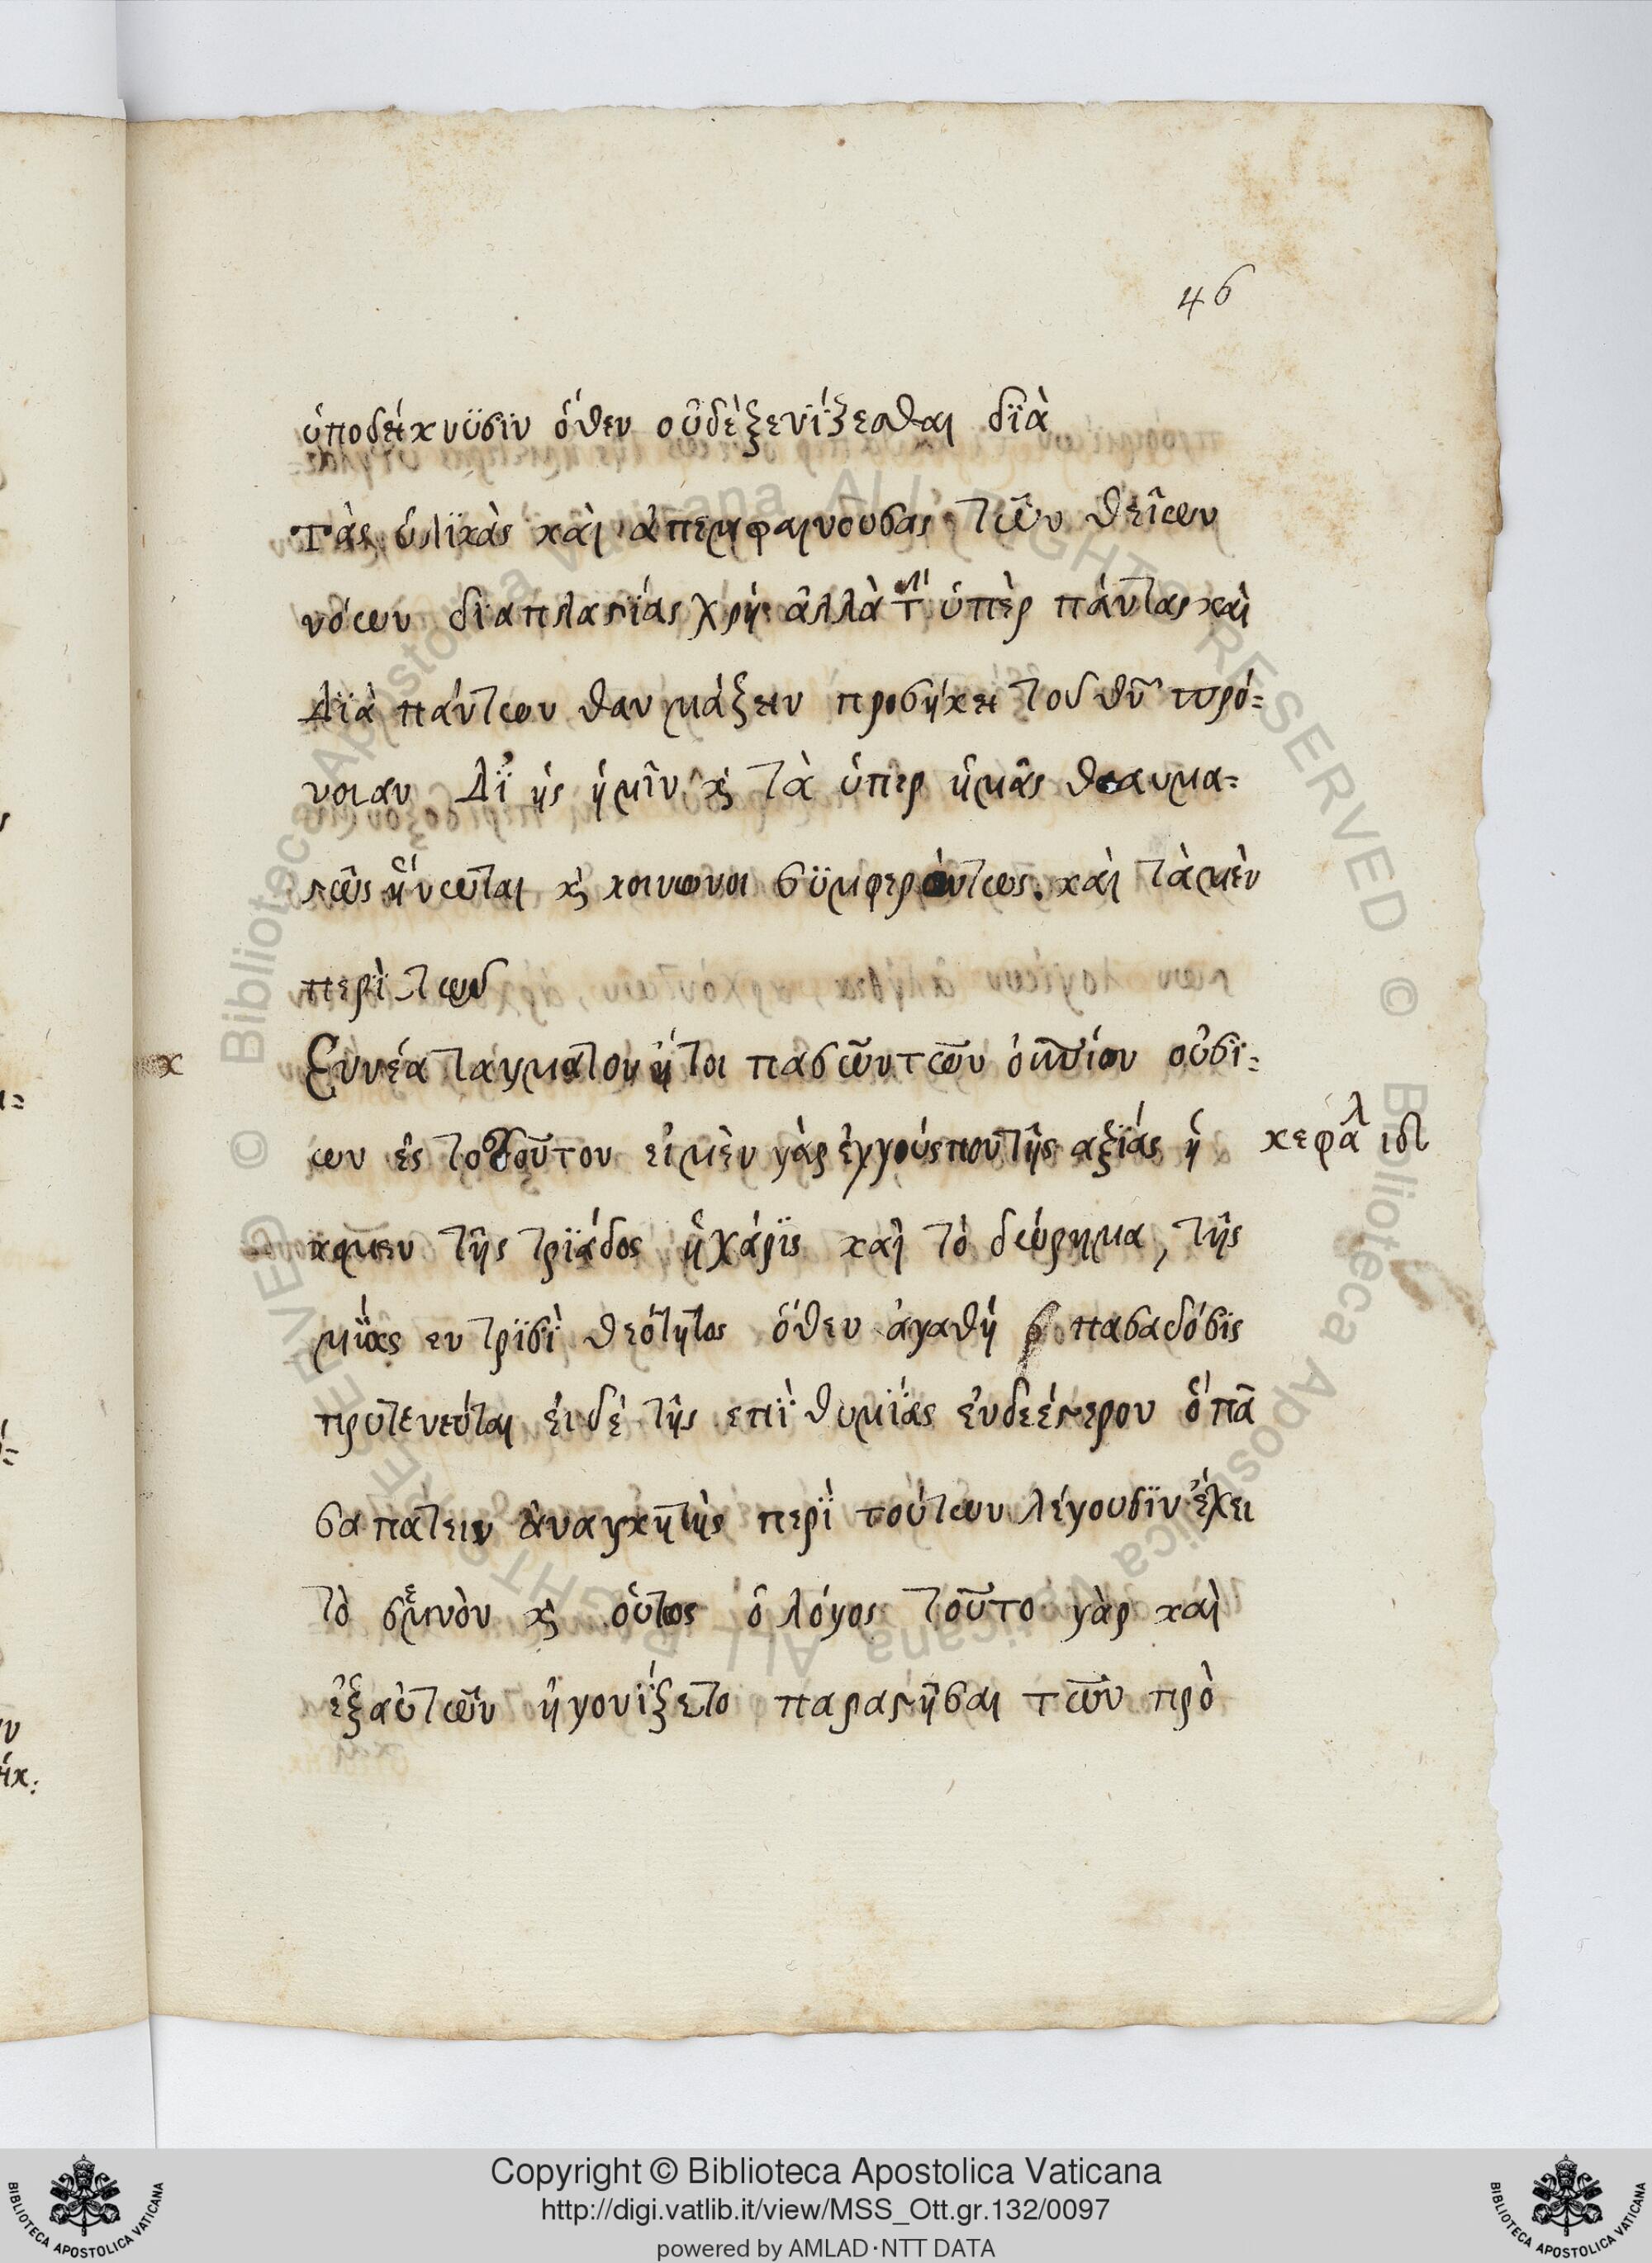 46
ὑποδείχνϋσϊν ὅθεν οὐδὲξενΐζεσθαι δϊὰ
τὰς ὑλϊκὰς καὶ ἀπεμφαινουσας τῶν θεῖων
νόων δϊαπλαστΐας χρή ἀλλὰ τ ὑπὲρ πάντας καὶ
Δϊὰ πάντων θαυμάζειν προσήκει τοῦ θῦ πρό=
νοιαν Δϊ ἧς ἡμῖν κ τὰ ὑπερ ἡμᾶς θαυμα=
στῶς ἥνωται κ κοινωνοι σϋμφερόντως. καὶ τὰμὲν
περῒ των
κ Εννέα ταγματον ἤτοι πασῶντῶν ὀκίον οὐσϊ=
ων ἐς τοσοῦτον εἰμὲν γὰρ ἐγγούςπουτῆς αξϊάς ἡ
κεφαλ ιδι
τῆς τρϊάδος ἡχάρϊς καὶ τὸ δώρημα, τῆς
μϊᾶς εν τρϊσῒ θεότητος ὅθεν ἀγαθή πασαδόσϊς
πρυτενεύται εἰδὲ τῆς επῒθυμΐας ἐνδεέστερον ὁπᾶ
σαπάτειν ἀναγκητὴς περῒ τούτων λέγουσϊν ἔχει
τὸ σεμνὸν κ οὗτος ὁ λόγος τοῦτο γὰρ καὶ
ἐξαὐτῶν ἡγονΐζετο παραστῆσαι τῶν πρὸ
Copyright © Biblioteca Apostolica Vaticana
http://digi.vatlib.it/view/MSS_Ott.gr.132/0097
powered by AMLAD·NTT DATA
BIBLIOTECA APOSTOLICA VATICANA
BIBLIOTECA APOSTOLICA VATICANA